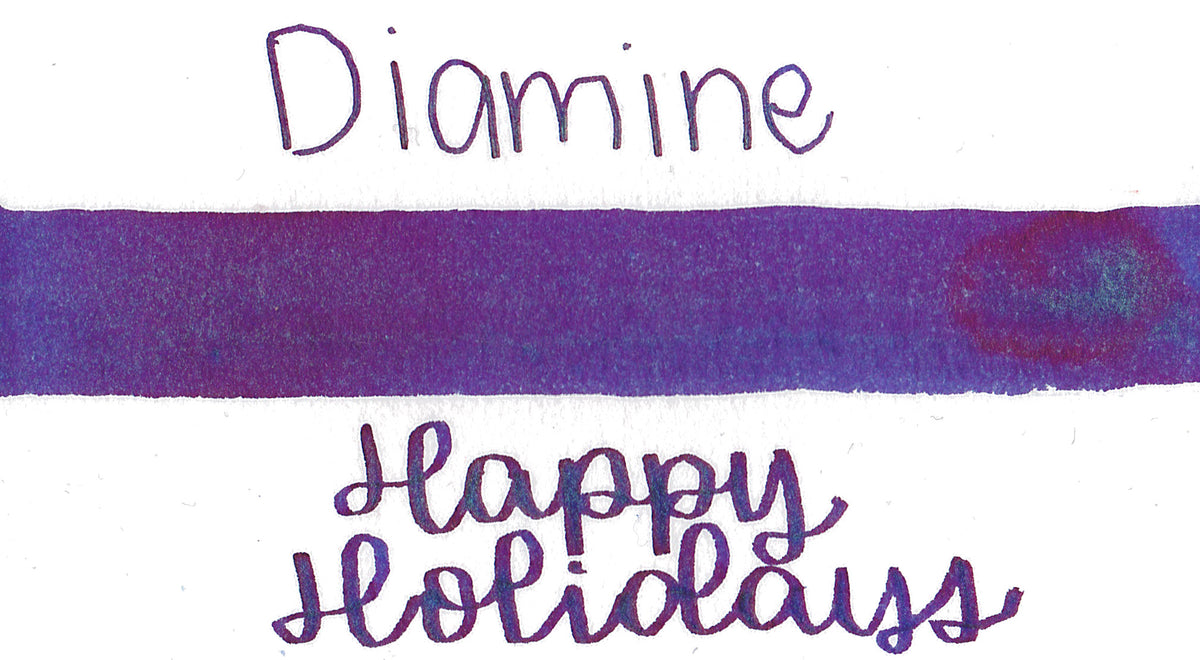 Diamine
Happy
Holidays